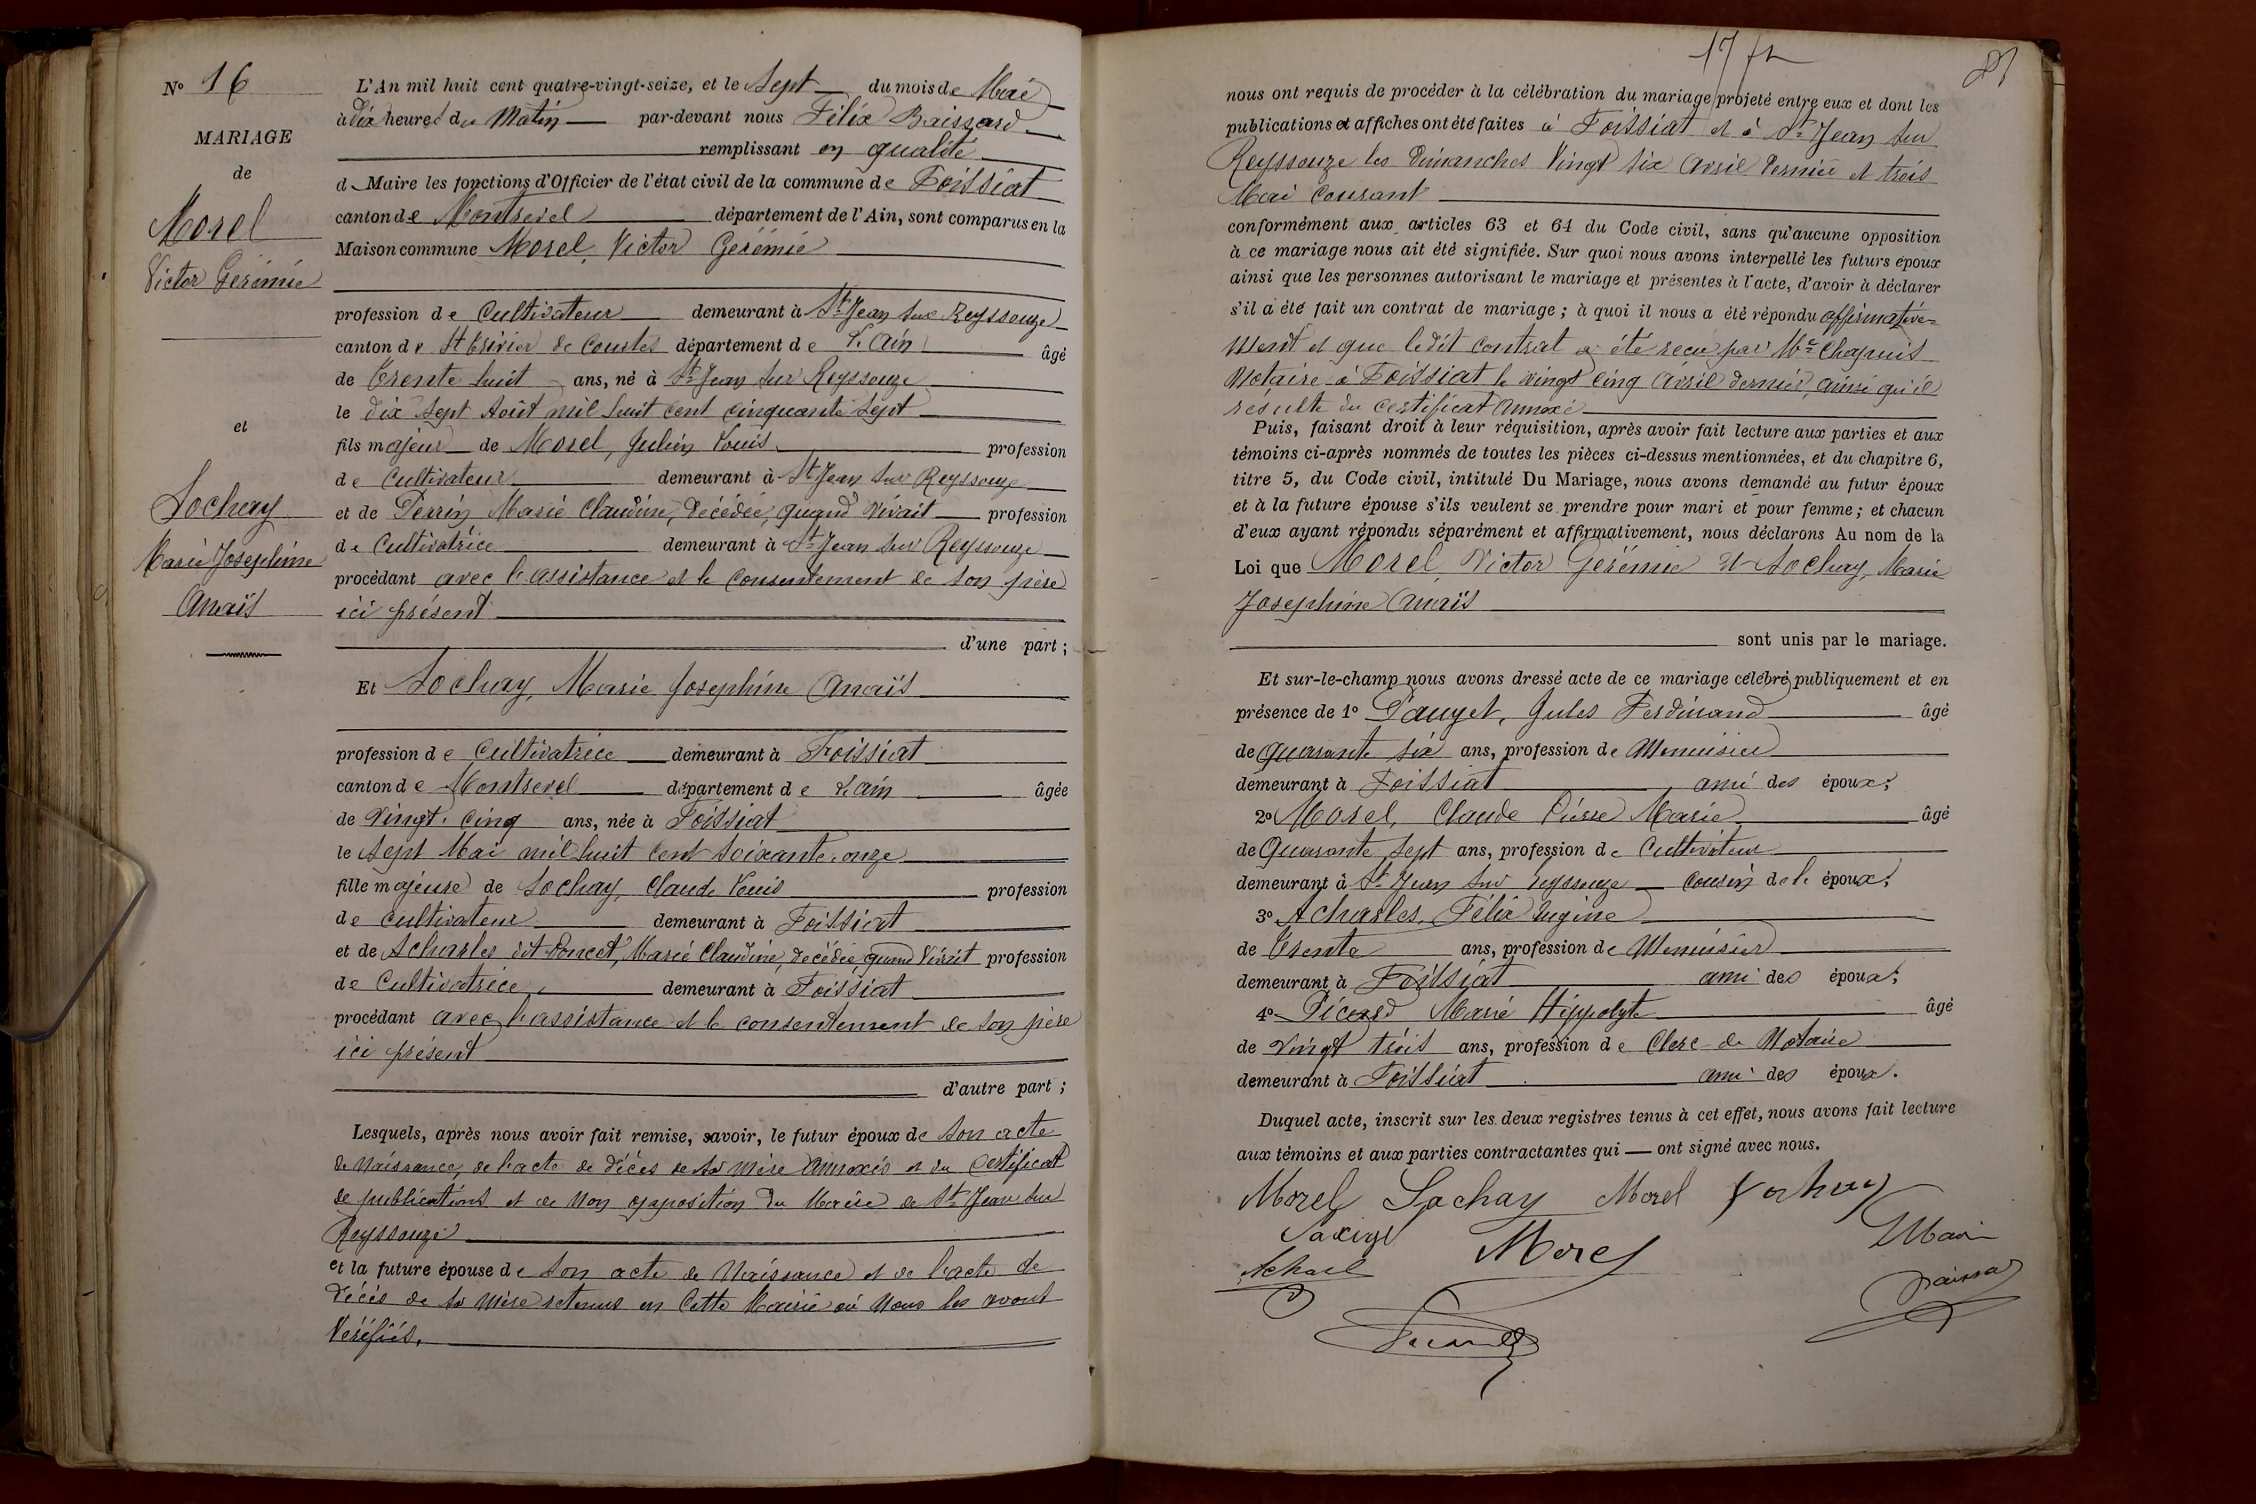 N° 16
MARIAGE
de
Morel
Victor Gerémie
et
Sochay
Marie Josephine
Anaïs
L'An mil huit cent quatre-vingt-seize, et le Sept du mois de Mai
à Dix heures du Matin par-devant nous Félix Baissard
remplissant en qualité
de Maire les fonctions d'Officier de l'état civil de la commune de Foissiat
canton de Montrevel département de l'Ain, sont comparus en la
Maison commune Morel, Victor Gerémie
profession de Cultivateur demeurant à St Jean sur Reyssouze
canton de St Trivier de Courtes département de L'Ain âgé
de Trente huit ans, né à St Jean sur Reyssouze
le dix sept Août mil huit cent cinquante sept
fils majeur de Morel, Julien Louis profession
de Cultivateur demeurant à St Jean sur Reyssouze
et de Perrin Marie Claudine, décédée, quand vivait profession
de Cultivatrice demeurant à St Jean sur Reyssouze
procédant avec l'assistance et le consentement de son père
ici présent
d'une part ;
Et Sochay, Marie Josephine Anaïs
profession de Cultivatrice demeurant à Foissiat
canton de Montrevel département de L'ain âgée
de Vingt-cinq ans, née à Foissiat
le Sept Mai mil huit cent soixante-onze
fille majeure de Sochay, Claude Louis profession
de cultivateur demeurant à Foissiat
et de Acharles dit Poncet, Marie Claudine, décédée, quand vivait profession
de Cultivatrice demeurant à Foissiat
procédant avec l'assistance et le consentement de son père
ici présent
d'autre part ;
Lesquels, après nous avoir fait remise, savoir, le futur époux de son acte
de Naissance, de l'acte de décès de sa mère annexés et du Certificat
de publications et de non opposition du Maire de St Jean sur
Reyssouze
et la future épouse de son acte de Naissance et de l'acte de
décès de sa mère retenus en cette Mairie où nous les avons
Vérifiés.
17 81
nous ont requis de procéder à la célébration du mariage projeté entre eux et dont les
publications et affiches ont été faites à Foissiat et à St Jean sur
Reyssouze les dimanches Vingt six Avril dernier et trois
Mai courant
conformément aux articles 63 et 64 du Code civil, sans qu'aucune opposition
à ce mariage nous ait été signifiée. Sur quoi nous avons interpellé les futurs époux
ainsi que les personnes autorisant le mariage et présentes à l'acte, d'avoir à déclarer
s'il a été fait un contrat de mariage ; à quoi il nous a été répondu affirmative-
ment et que ledit contrat a été reçu par Me Chapuis
Notaire à Foissiat le vingt cinq Avril dernier, ainsi qu'il
résulte du certificat annexé
Puis, faisant droit à leur réquisition, après avoir fait lecture aux parties et aux
témoins ci-après nommés de toutes les pièces ci-dessus mentionnées, et du chapitre 6,
titre 5, du Code civil, intitulé Du Mariage, nous avons demandé au futur époux
et à la future épouse s'ils veulent se prendre pour mari et pour femme ; et chacun
d'eux ayant répondu séparément et affirmativement, nous déclarons Au nom de la
Loi que Morel, Victor Gerémie et Sochay, Marie
Josephine Anaïs
sont unis par le mariage.
Et sur-le-champ nous avons dressé acte de ce mariage célébré publiquement et en
présence de 1° Pauget, Jules Ferdinand âgé
de quarante six ans, profession de Menuisier
demeurant à Foissiat ami des époux ;
2° Morel, Claude Pierre Marie âgé
de Quarante sept ans, profession de Cultivateur
demeurant à St Jean sur Reyssouze cousin de l'époux ;
3° Acharles, Félix Eugène
de Trente ans, profession de Menuisier
demeurant à Foissiat ami des époux ;
4° Picard Marie Hippolyte âgé
de Vingt trois ans, profession de Clerc de Notaire
demeurant à Foissiat ami des époux.
Duquel acte, inscrit sur les deux registres tenus à cet effet, nous avons fait lecture
aux témoins et aux parties contractantes qui ont signé avec nous.
Morel Sochay Morel Sochay
Morel Maire
Acharl
Baissard
Picard